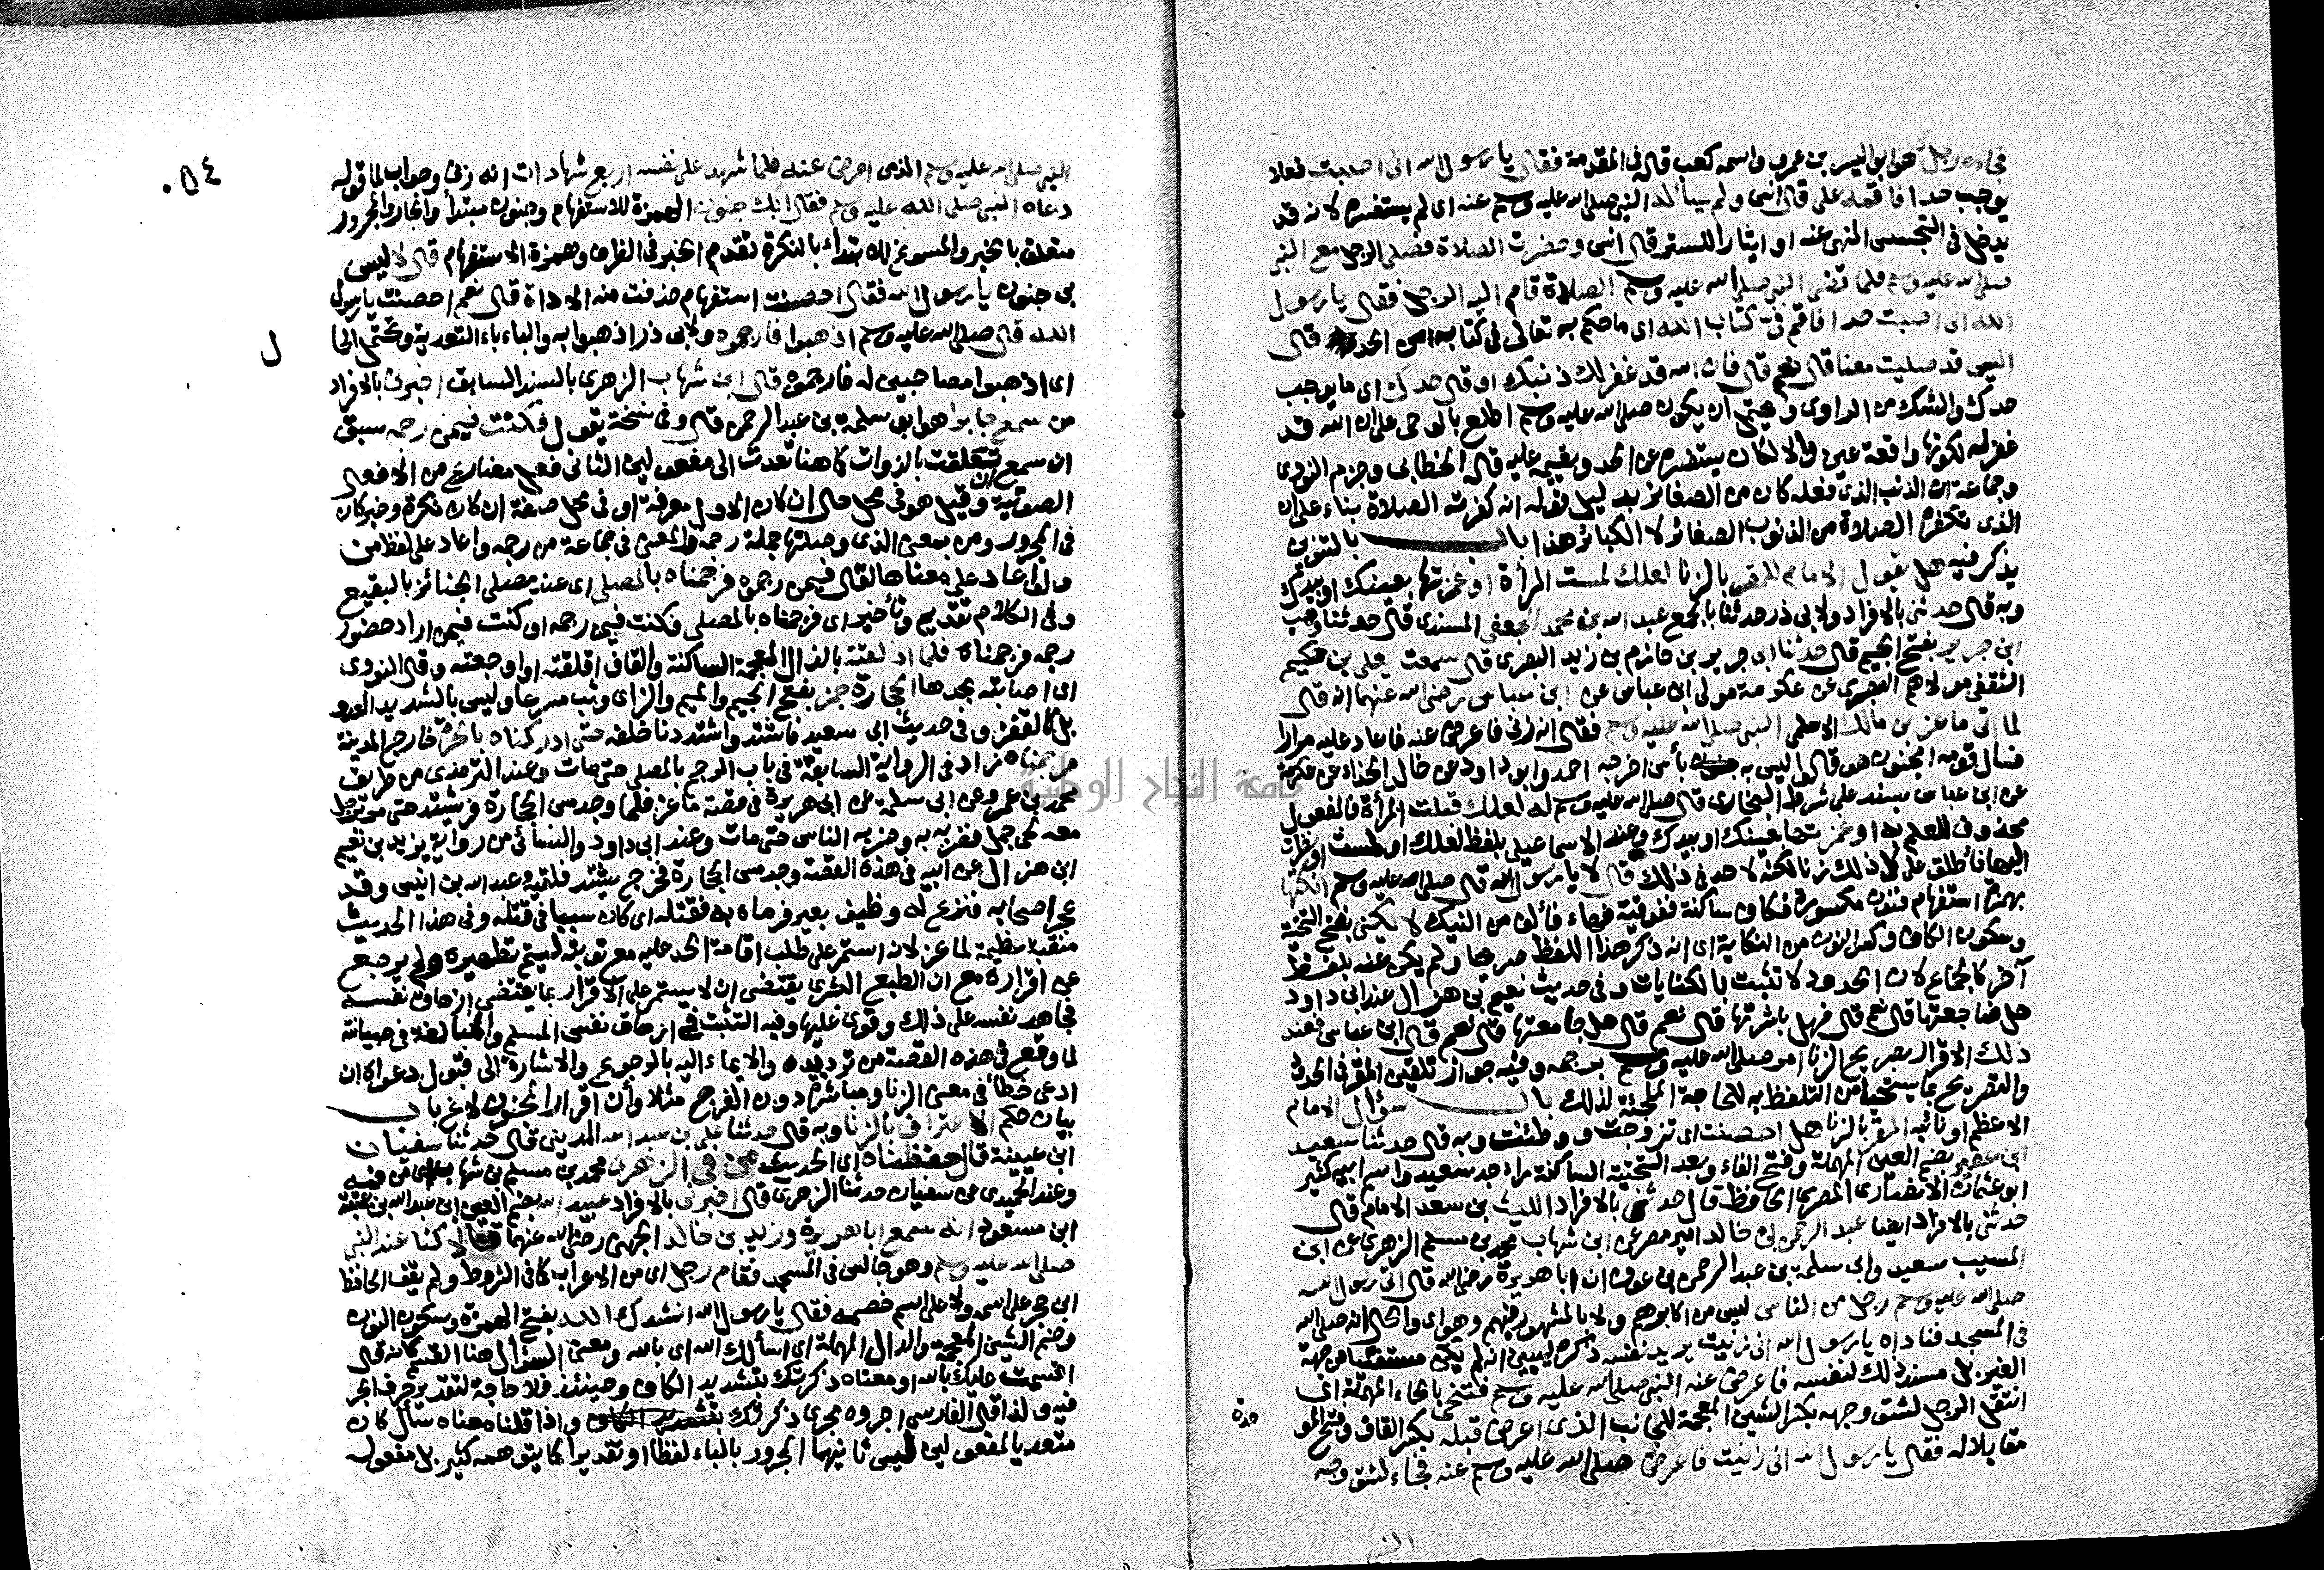 فجاءه رجل هو ابو اليسر بن عمرو واسمه كعب قاله في المقدمة فقال يا رسول الله اني اصبت فعلا
يوجب حدا فاقمه على قال انس ولم يسأله النبي صلى الله عليه وسلم عنه اي لم يستفسره لانه قد
يدخل في التجسس المنهي عنه او ايثارا للستر قال انس وحضرت الصلاة فصلى الرجل مع النبي
صلى الله عليه وسلم فلما قضى النبي صلى الله عليه وسلم الصلاة قام اليه الرجل فقال يا رسول
الله اني اصبت حدا فاقم فيّ كتاب الله اي ما حكم به تعالى في كتابه من الحد قال
اليس قد صليت معنا قال نعم قال فان الله قد غفر لك ذنبك او قال حدك اي ما يوجب
حدك والشك من الراوي ويحتمل ان يكون صلى الله عليه وسلم اطلع بالوحي على ان الله قد
غفر له لكونها واقعة عين والا لكان يستفسره عن الحد ويقيمه عليه قاله الخطابي وجزم النووي
وجماعة ان الذنب الذي فعله كان من الصغائر بدليل قوله انه كفرته الصلاة بناء على ان
الذي تكفره الصلاة من الذنوب الصغائر لا الكبائر هذا باب بالتنوين
يذكر فيه هل يقول الامام للمقر بالزنا لعلك لمست المرأة او غمزتها بعينك او بيدك
وبه قال حدثني بالافراد ولابي ذر حدثنا بالجمع عبد الله بن محمد الجعفي المسندي قال حدثنا وهب
ابن جرير بفتح الجيم قال حدثنا ابي جرير بن حازم بن زيد البصري قال سمعت يعلى بن حكيم
الثقفي مولاهم البصري عن عكرمة مولى ابن عباس عن ابن عباس رضي الله عنهما انه قال
لما اتى ماعز بن مالك الاسلمي النبي صلى الله عليه وسلم فقال انه زنى فاعرض عنه فاعاد عليه مرارا
فسأل قومه امجنون هو قالوا ليس به بأس اخرجه احمد وابو داود عن خالد الحذاء عن عكرمة
عن ابن عباس بسند على شرط البخاري قال صلى الله عليه وسلم له لعلك قبلت المرأة فالمفعول
محذوف للعلم به او غمزتها بعينك او بيدك وعند الاسماعيلي بلفظ لعلك او لمست او نظرت
اليها فأطلق على كل ذلك زنا لكنه لا حد في ذلك قال لا يا رسول الله قال صلى الله عليه وسلم انكتها
بهمزة استفهام فنون مكسورة فكاف ساكنة ففوقية فهاء فألف من النيك لا يكني بفتح التحتية
وسكون الكاف وكسر النون من الكناية اي انه ذكر هذا اللفظ صريحا ولم يكن عنه بلفظ
آخر كالجماع لان الحدود لا تثبت بالكنايات وفي حديث نعيم بن هزال عند ابي داود
هل ضاجعتها قال نعم قال فهل باشرتها قال نعم قال هل جامعتها قال نعم قال ابن عباس فعند
ذلك الاقرار بصريح الزنا امر صلى الله عليه وسلم برجمه وفيه جواز تلقين المقر في الحدود
والتصريح بما يستحيا من التلفظ به للحاجة الملجئة لذلك باب سؤال الامام
الاعظم او نائبه المقر بالزنا هل احصنت اي تزوجت ووطئت وبه قال حدثنا سعيد
ابن عفير بضم العين المهملة وفتح الفاء وبعد التحتية الساكنة راء جد سعيد واسم ابيه كثير
ابو عثمان الانصاري المصري الحافظ قال حدثني بالافراد الليث بن سعد الامام قال
حدثني بالافراد ايضا عبد الرحمن بن خالد امير مصر عن ابن شهاب محمد بن مسلم الزهري عن ابن
المسيب سعيد وابي سلمة بن عبد الرحمن بن عوف ان ابا هريرة رضي الله عنه قال اتى رسول الله
صلى الله عليه وسلم رجل من الناس ليس من اكابرهم ولا بالمشهور فيهم وهو اي والحال انه صلى الله
في المسجد فناداه يا رسول الله اني زنيت يريد نفسه ذكره ليبين انه لم يكن مستفتيا من جهة
الغير بل مسندا ذلك لنفسه فاعرض عنه النبي صلى الله عليه وسلم فتنحى بالحاء المهملة اي
انتقل الرجل لشق وجهه بكسر الشين المعجمة للجانب الذي اعرض قبله بكسر القاف وفتح المو
حدة
مقابلا له فقال يا رسول الله اني زنيت فاعرض صلى الله عليه وسلم عنه فجاء لشق وجه
النبي
٥٤
النبي صلى الله عليه وسلم الذي اعرض عنه فلما شهد على نفسه اربع شهادات انه زنى وجواب لما قوله
دعاه النبي صلى الله عليه وسلم فقال ابك جنون الهمزة للاستفهام وجنون مبتدأ والجار والمجرور
متعلق بالخبر والمسوغ للابتداء بالنكرة تقدم الخبر في الظرف وهمزة الاستفهام قال لا ليس
بي جنون يا رسول الله فقال احصنت استفهام حذفت منه الاداة قال نعم احصنت يا رسول
الله قال صلى الله عليه وسلم اذهبوا فارجموه ولابي ذر اذهبوا به والباء باء التعدية وتحتمل الحا
ل
اي اذهبوا مصاحبين له فارجموه قال ابن شهاب الزهري بالسند السابق اخبرني بالافراد
من سمع جابرا هو ابو سلمة بن عبد الرحمن قال وفي نسخة يقول فكنت فيمن رجمه سبق
ان سمع ان تعلقت بالذوات كما هنا تعدت الى مفعولين الثاني فعل مضارع من الافعال
الصوتية وقيل هو في محل حال ان كان الاول معرفة او في محل صفة ان كان نكرة وخبر كان
في المجرور ومن بمعنى الذي وصلتها جملة رجمه والمعنى في جماعة من رجمه واعاد على لفظ من
ولو اعاد على معناها لقال فيمن رجموه فرجمناه بالمصلى اي عند مصلى الجنائز بالبقيع
وفي الكلام تقديم وتأخير اي فرجمناه بالمصلى فكنت فيمن رجمه او كنت فيمن اراد حضور
رجمه فرجمناه فلما اذلقته بالذال المعجمة الساكنة والقاف اقلقته او اوجعته وقال النووي
اي اصابته بحدها الحجارة جمز بفتح الجيم والميم والزاي وثب مسرعا وليس بالشديد العدو
بل كالقفز وفي حديث ابي سعيد فاشتد واشتددنا خلفه حتى ادركناه بالحرة خارج المدينة
فرجمناه زاد في الرواية السابقة في باب الرجم بالمصلى حتى مات وعند الترمذي من طريق
محمد بن عمرو عن ابي سلمة عن ابي هريرة في قصة ماعز فلما وجد مس الحجارة فر يشتد حتى مر برجل
معه لحي جمل فضربه به وضربه الناس حتى مات وعند ابي داود والنسائي من رواية يزيد بن نعيم
ابن هزال عن ابيه في هذه القصة وجد مس الحجارة فخرج يشتد فلقيه عبد الله بن انيس وقد
عجز اصحابه فنزع له وظيف بعير فرماه به فقتله اي كان سببا في قتله وفي هذا الحديث
منقبة عظيمة لماعز لانه استمر على طلب اقامة الحد عليه مع توبته ليتم تطهيره ولم يرجع
عن اقراره مع ان الطبع البشري يقتضي ان لا يستمر على الاقرار بما يقتضي ازهاق نفسه
فجاهد نفسه على ذلك وقوي عليها وفيه التثبت في ازهاق نفس المسلم والمبالغة في صيانته
لما وقع في هذه القصة من ترديده والايماء اليه بالرجوع والاشارة الى قبول دعواه ان
ادعى خطأ في معنى الزنا ومباشرة دون الفرج مثلا وأن اقرار المجنون لاغ باب
بيان حكم الاعتراف بالزنا وبه قال حدثنا علي بن عبد الله المديني قال حدثنا سفيان
ابن عيينة قال حفظناه اي الحديث من في الزهري محمد بن مسلم بن شهاب اي من فيه
وعند الحميدي عن سفيان حدثنا الزهري قال اخبرني بالافراد عبيد الله بضم العين ابن عبد الله بن عتبة
ابن مسعود انه سمع ابا هريرة وزيد بن خالد الجهني رضي الله عنهما قالا كنا عند النبي
صلى الله عليه وسلم وهو جالس في المسجد فقام رجل اي من الاعراب كما في الشروط ولم يقف الحافظ
ابن حجر على اسمه ولا على اسم خصمه فقال يا رسول الله انشدك الله بفتح الهمزة وسكون النون
وضم الشين المعجمة والدال المهملة اي اسألك الله اي بالله ومعنى السؤال هنا القسم كانه قال
اقسمت عليك بالله او معناه ذكرتك بتشديد الكاف وحينئذ فلا حاجة لتقدير حرف الجر
فيه ولذا قال الفارسي اجروه مجرى ذكرتك واذا قلنا معناه سأل كان
متعديا لمفعولين ليس ثانيهما المجرور بالباء لفظا او تقديرا كما يتوهمه كثير بل مفعوله
جامعة النجاح الوطنية